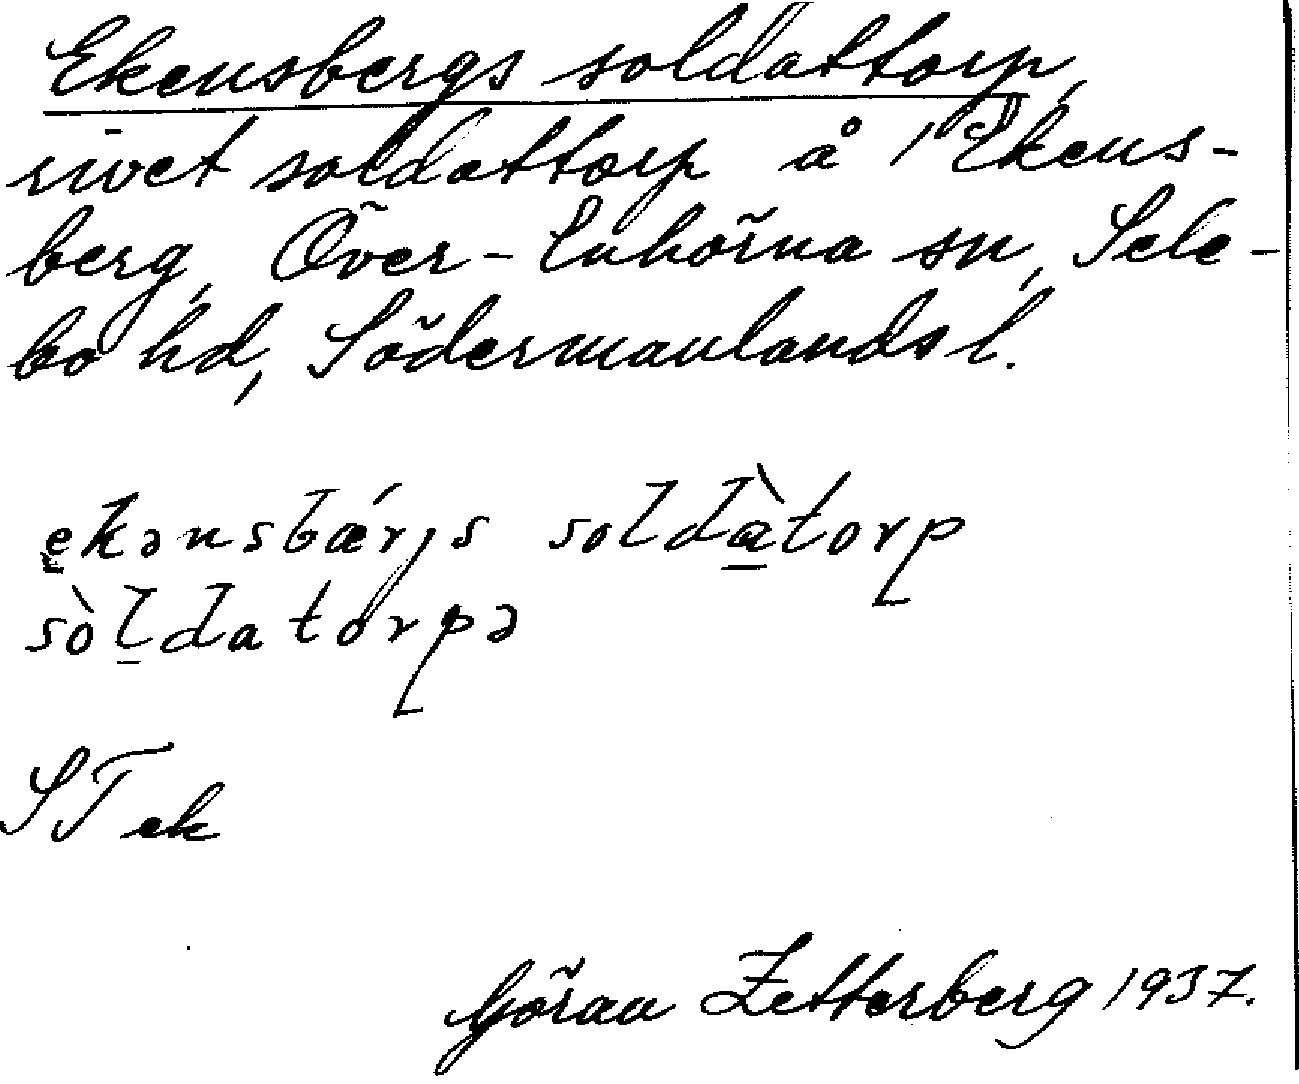 Ekensbergs soldattorp,
rivet soldattorp å 1 Ekens-
berg, Över-Enhörna sn, Sele-
bo hd, Södermanlands l.
ekənsbærjs soldàtorp
sòldatorpə
STek
Göran Zetterberg 1937.